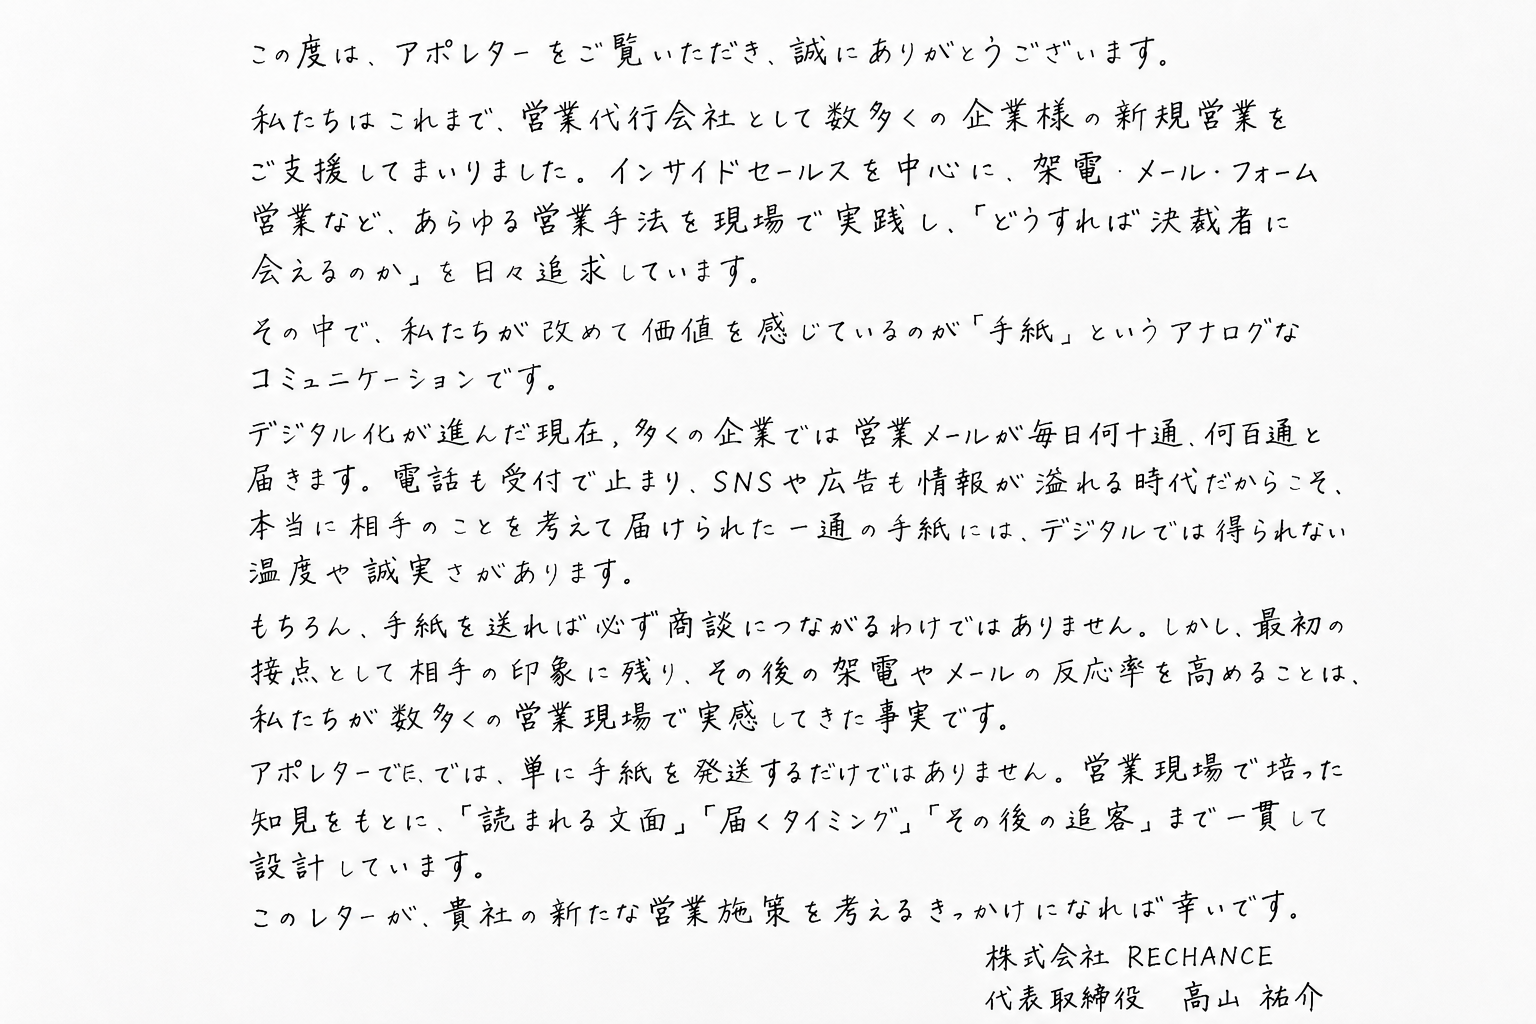 この度は、アポレターをご覧いただき、誠にありがとうございます。
私たちはこれまで、営業代行会社として数多くの企業様の新規営業を
ご支援してまいりました。インサイドセールスを中心に、架電・メール・フォーム
営業など、あらゆる営業手法を現場で実践し、「どうすれば決裁者に
会えるのか」を日々追求しています。
その中で、私たちが改めて価値を感じているのが「手紙」というアナログな
コミュニケーションです。
デジタル化が進んだ現在,多くの企業では営業メールが毎日何十通、何百通と
届きます。電話も受付で止まり、SNSや広告も情報が溢れる時代だからこそ、
本当に相手のことを考えて届けられた一通の手紙には、デジタルでは得られない
温度や誠実さがあります。
もちろん、手紙を送れば必ず商談につながるわけではありません。しかし、最初の
接点として相手の印象に残り、その後の架電やメールの反応率を高めることは、
私たちが数多くの営業現場で実感してきた事実です。
アポレターでは、単に手紙を発送するだけではありません。営業現場で培った
知見をもとに、「読まれる文面」「届くタイミング」「その後の追客」まで一貫して
設計しています。
このレターが、貴社の新たな営業施策を考えるきっかけになれば幸いです。
株式会社 RECHANCE
代表取締役 高山 祐介